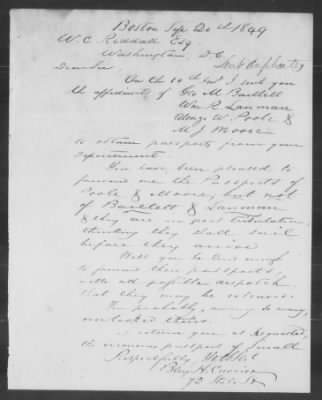 Boston Sep 20th 1849
W. C. Reddall Esq
Washington, D.C.
Dear Sir,
On the 10th Inst I sent you
the affidavits of Geo M Bartlett
Wm R. Lanman
Alonzo W. Poole &
M J Moore
to obtain passports from your
department
You have been pleased to
forward me the Passports of
Poole & Moore, but not
of Bartlett & Lanman
& they are in great tribulation,
thinking they shall sail
before they arrive
Will you be kind enough
to forward their passports,
with all possible despatch,
that they may be relieved.
You probably, among so many,
overlooked them.
I return you, as requested,
the erroneous passport of Small
Respectfully Yr Obt
Benj. H. Currier
72 State St